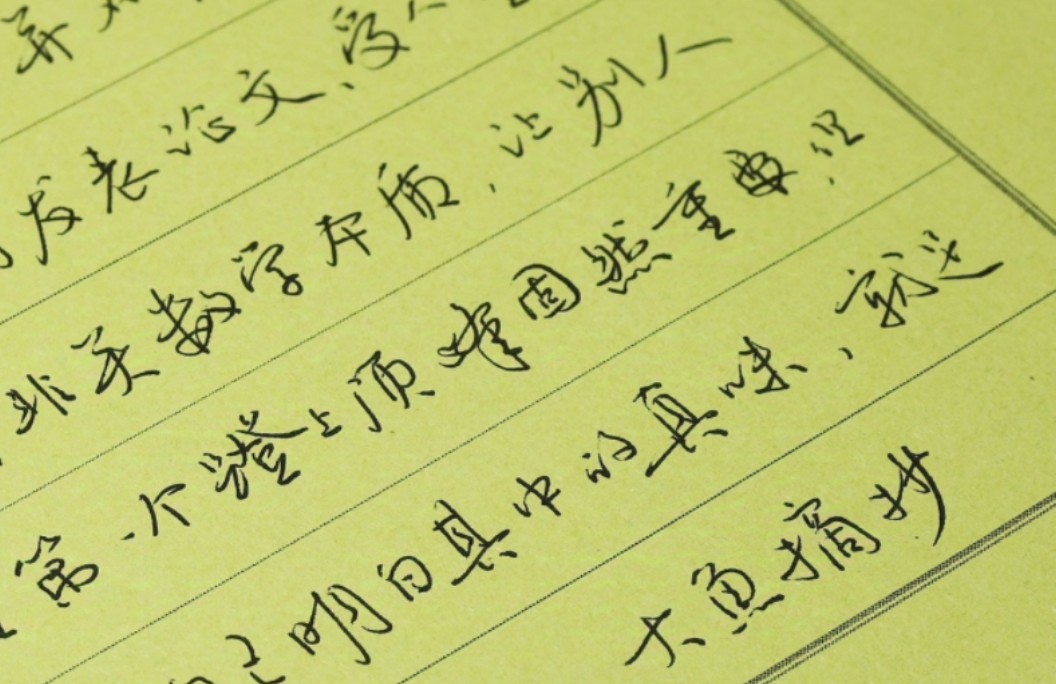 发表论文、受
非关数学本质,让别人
第一个登上顶峰固然重要,但
明白其中的真味,就是
大鱼摘抄